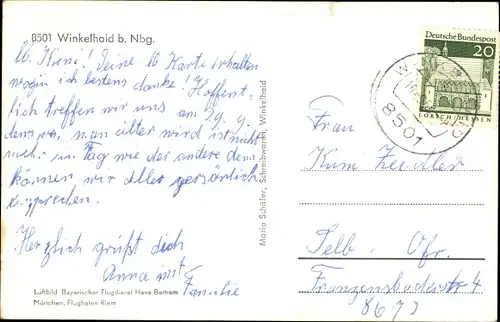 8501 Winkelhaid b. Nbg.
Lb. Kuni! Deine 10 Karte erhalten
wofür ich bestens danke! Hoffent-
lich treffen wir uns am 29. 9.
denn man älter wird ist nicht
mehr ein Tag wie der andere dann
können wir alles persönlich
besprechen.
Herzlich grüßt dich
Anna mit
Familie
Luftbild Bayerischer Flugdienst Hans Bertram
München, Flughafen Riem
Mario Schäfer, Schreibwaren, Winkelhaid
Deutsche Bundespost
20
LORSCH/HESSEN
8501
Frau
Selb. Ofr.
Franzensbaderstr 4
8672